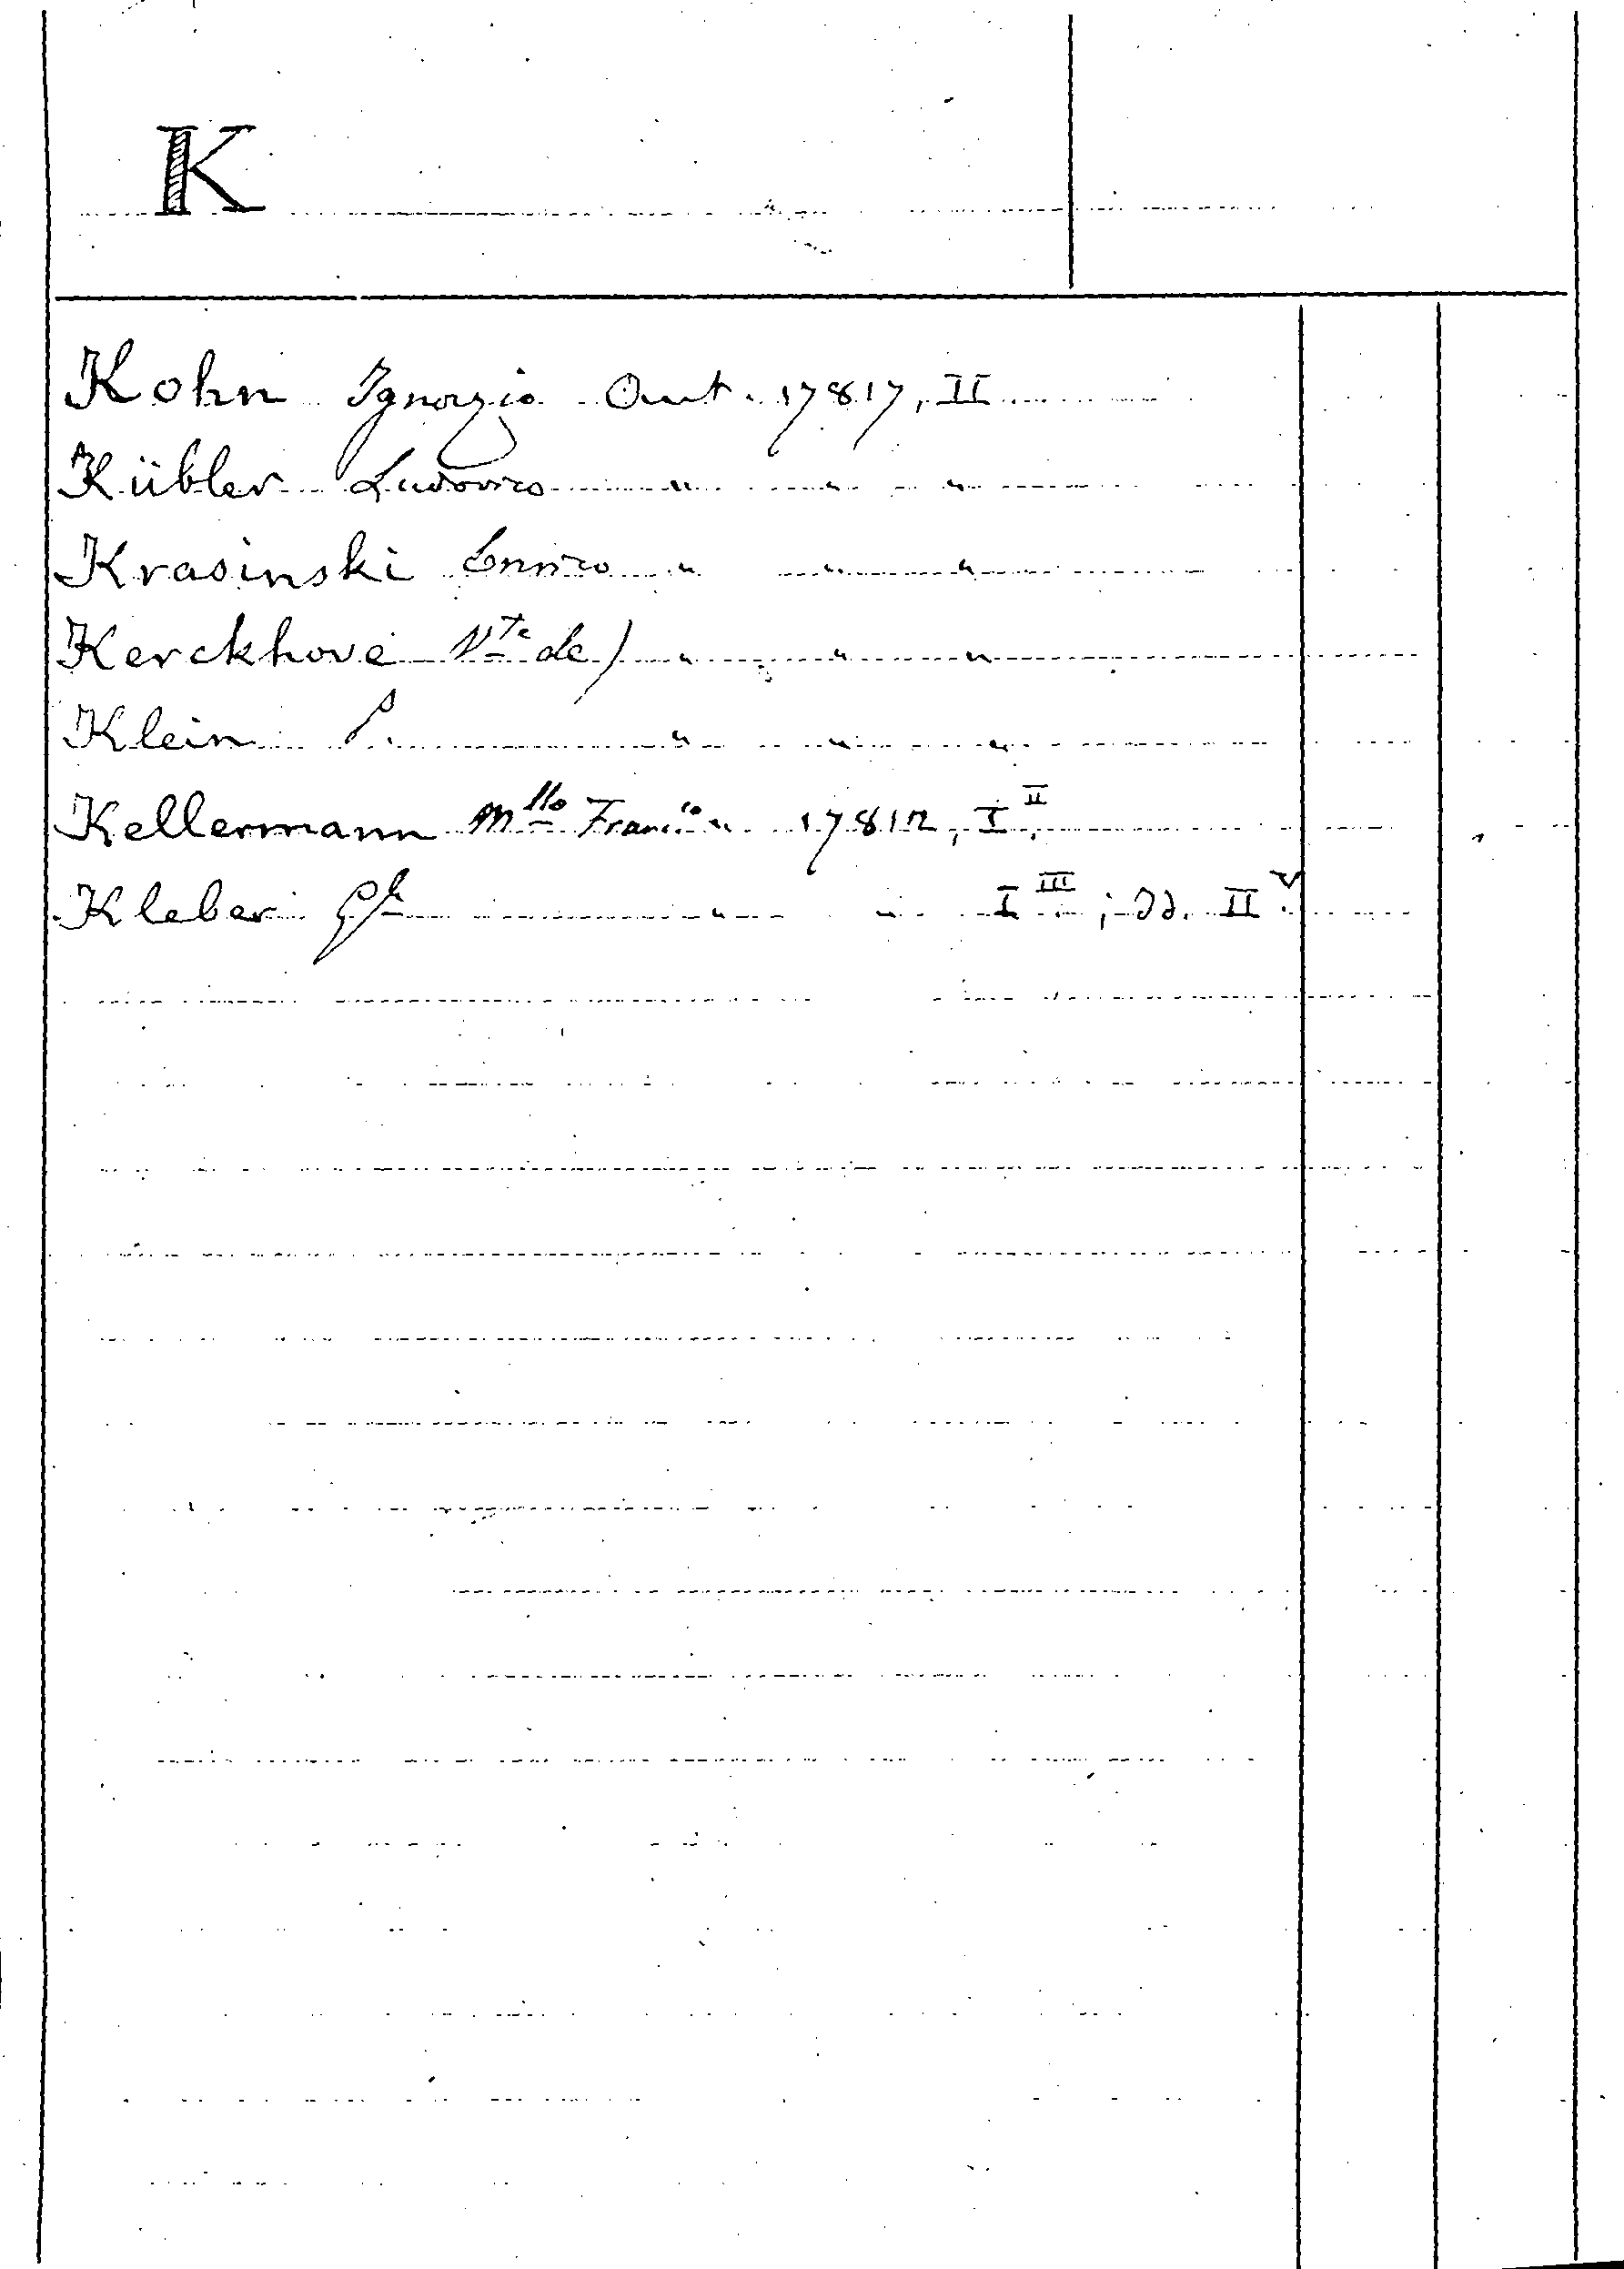 K
Kohn Ignazio Aut. 17817, II
Kübler Ludovico " " "
Krasinski Enrico " " "
Kerckhove Vte de) " " "
Klein P. " " "
Kellermann Mllo Francco " 17812, I II.
Kleber " " I III; Id. II V